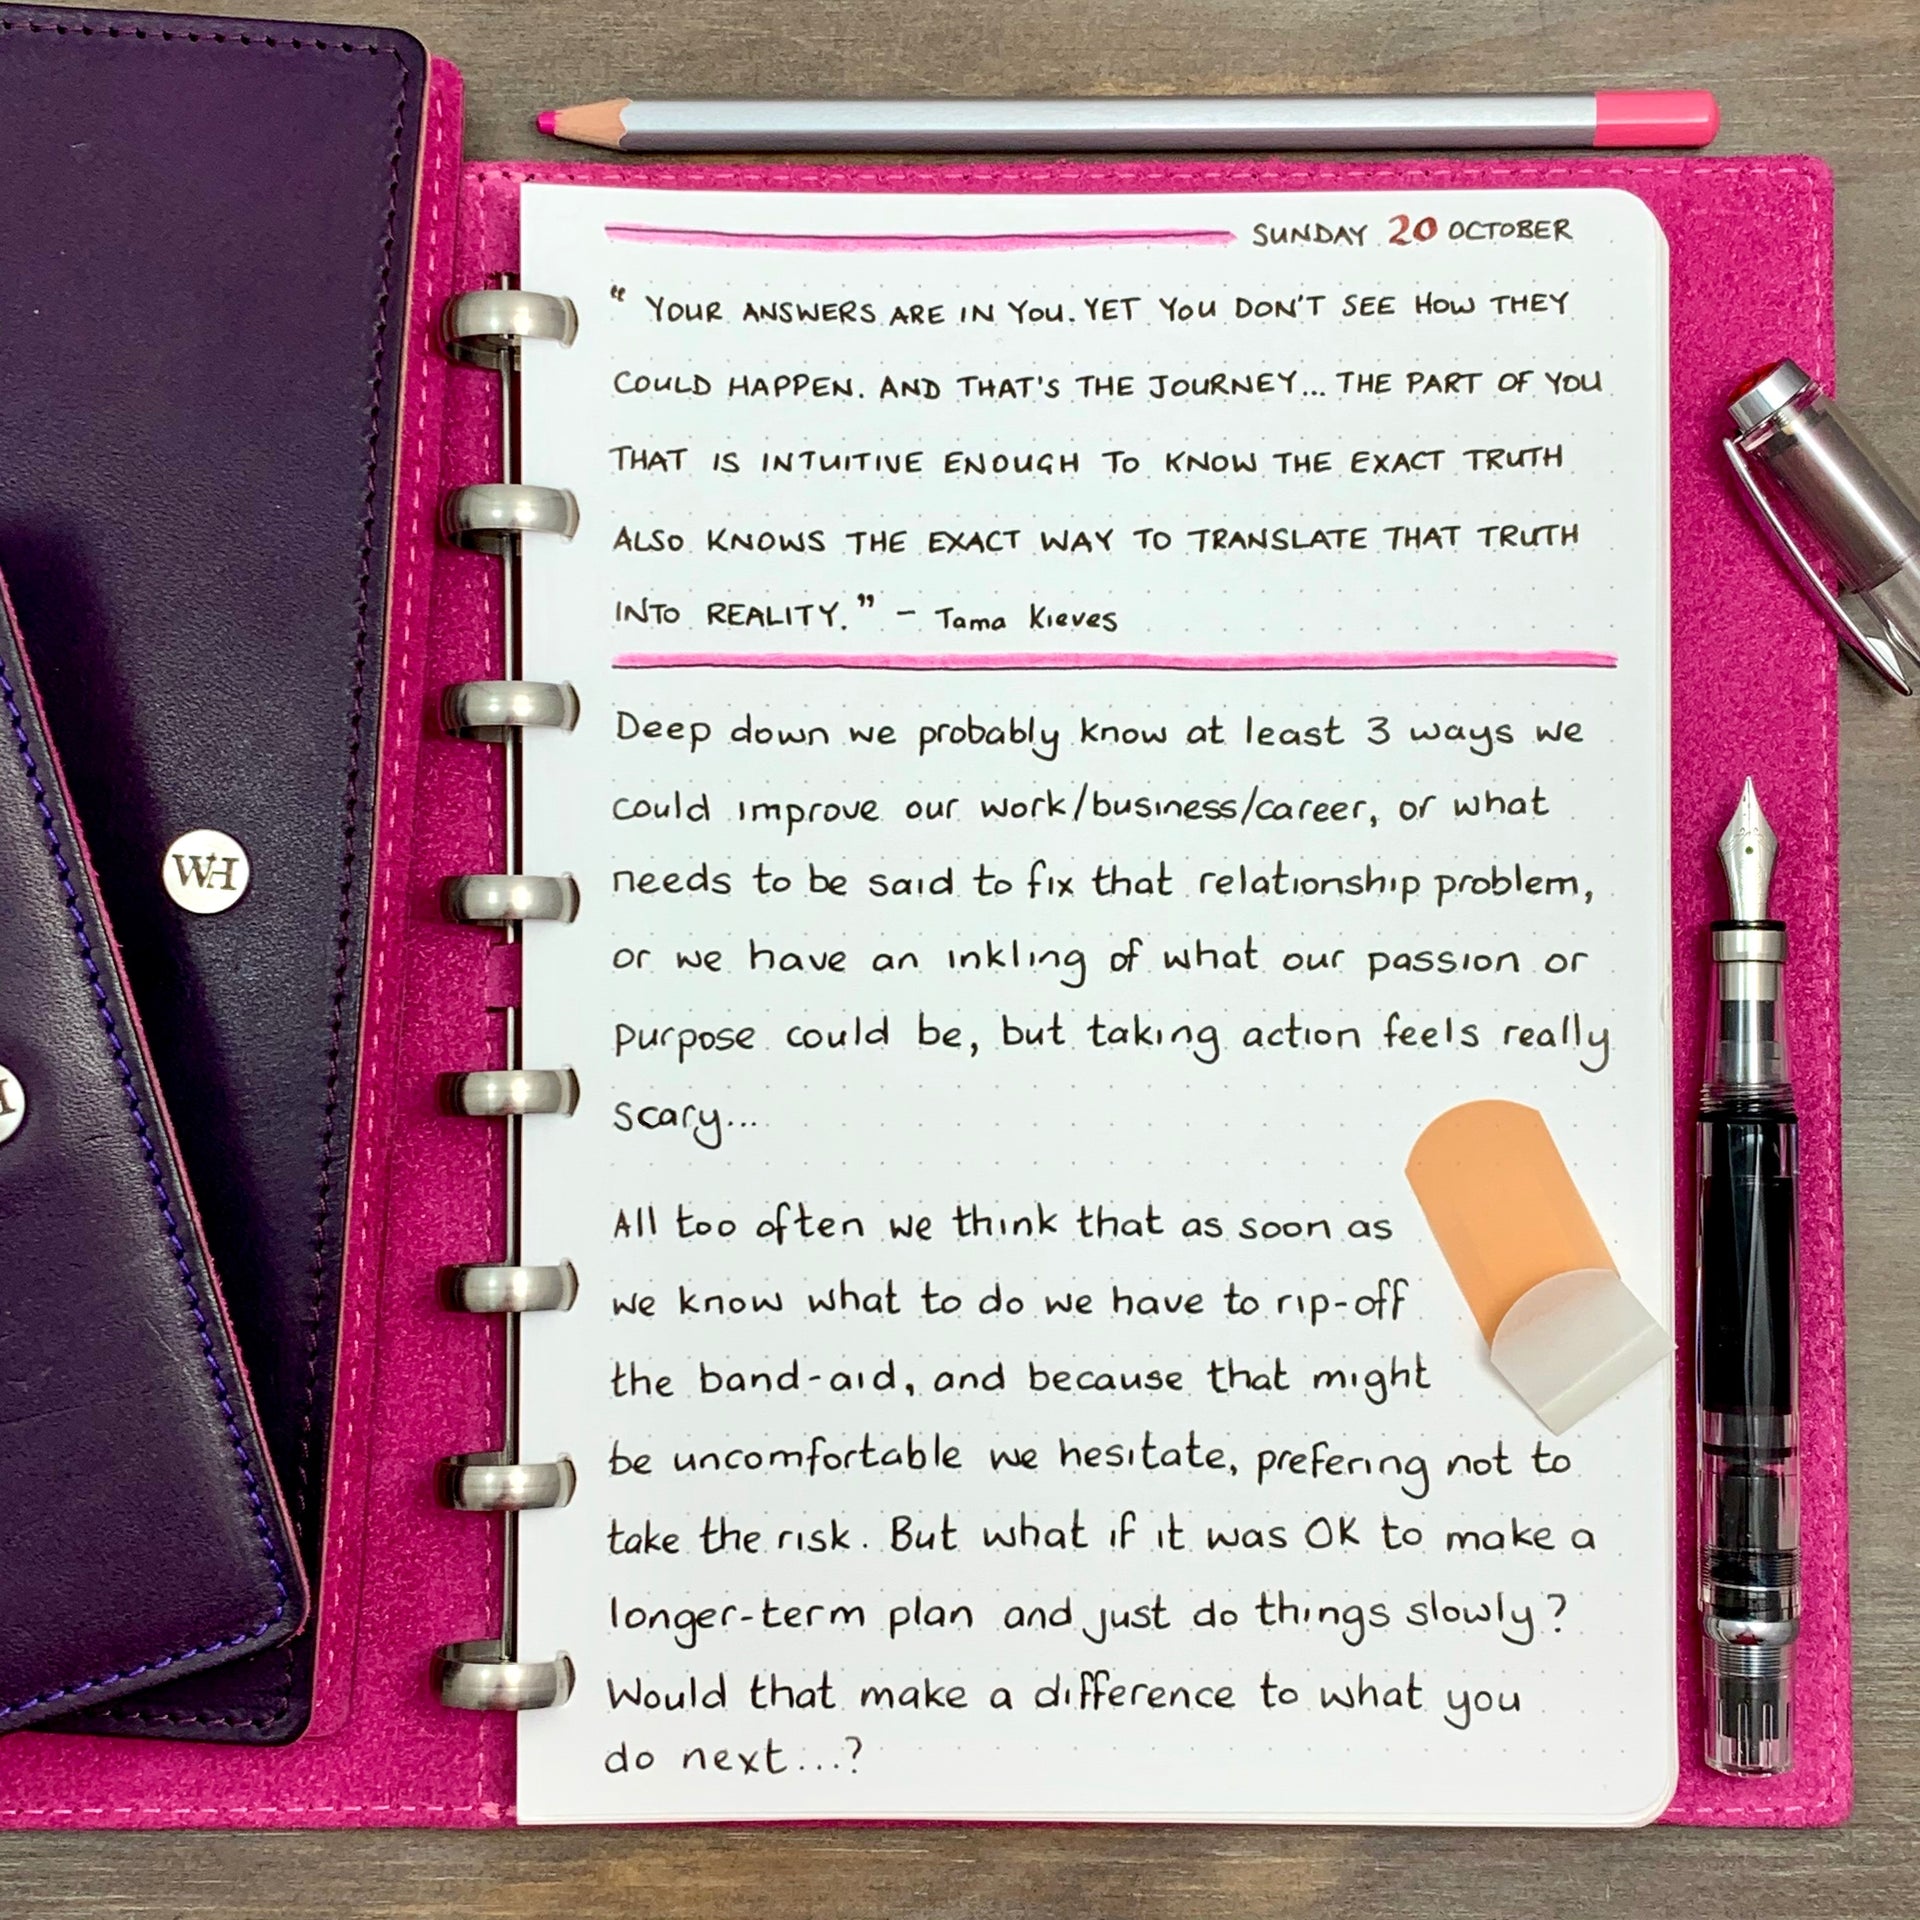 SUNDAY 20 OCTOBER
“ YOUR ANSWERS ARE IN YOU. YET YOU DON'T SEE HOW THEY
COULD HAPPEN. AND THAT'S THE JOURNEY... THE PART OF YOU
THAT IS INTUITIVE ENOUGH TO KNOW THE EXACT TRUTH
ALSO KNOWS THE EXACT WAY TO TRANSLATE THAT TRUTH
INTO REALITY.” - Tama Kieves
Deep down we probably know at least 3 ways we
could improve our work/business/career, or what
needs to be said to fix that relationship problem,
or we have an inkling of what our passion or
purpose could be, but taking action feels really
scary...
All too often we think that as soon as
we know what to do we have to rip-off
the band-aid, and because that might
be uncomfortable we hesitate, prefering not to
take the risk. But what if it was OK to make a
longer-term plan and just do things slowly?
Would that make a difference to what you
do next...?
WH